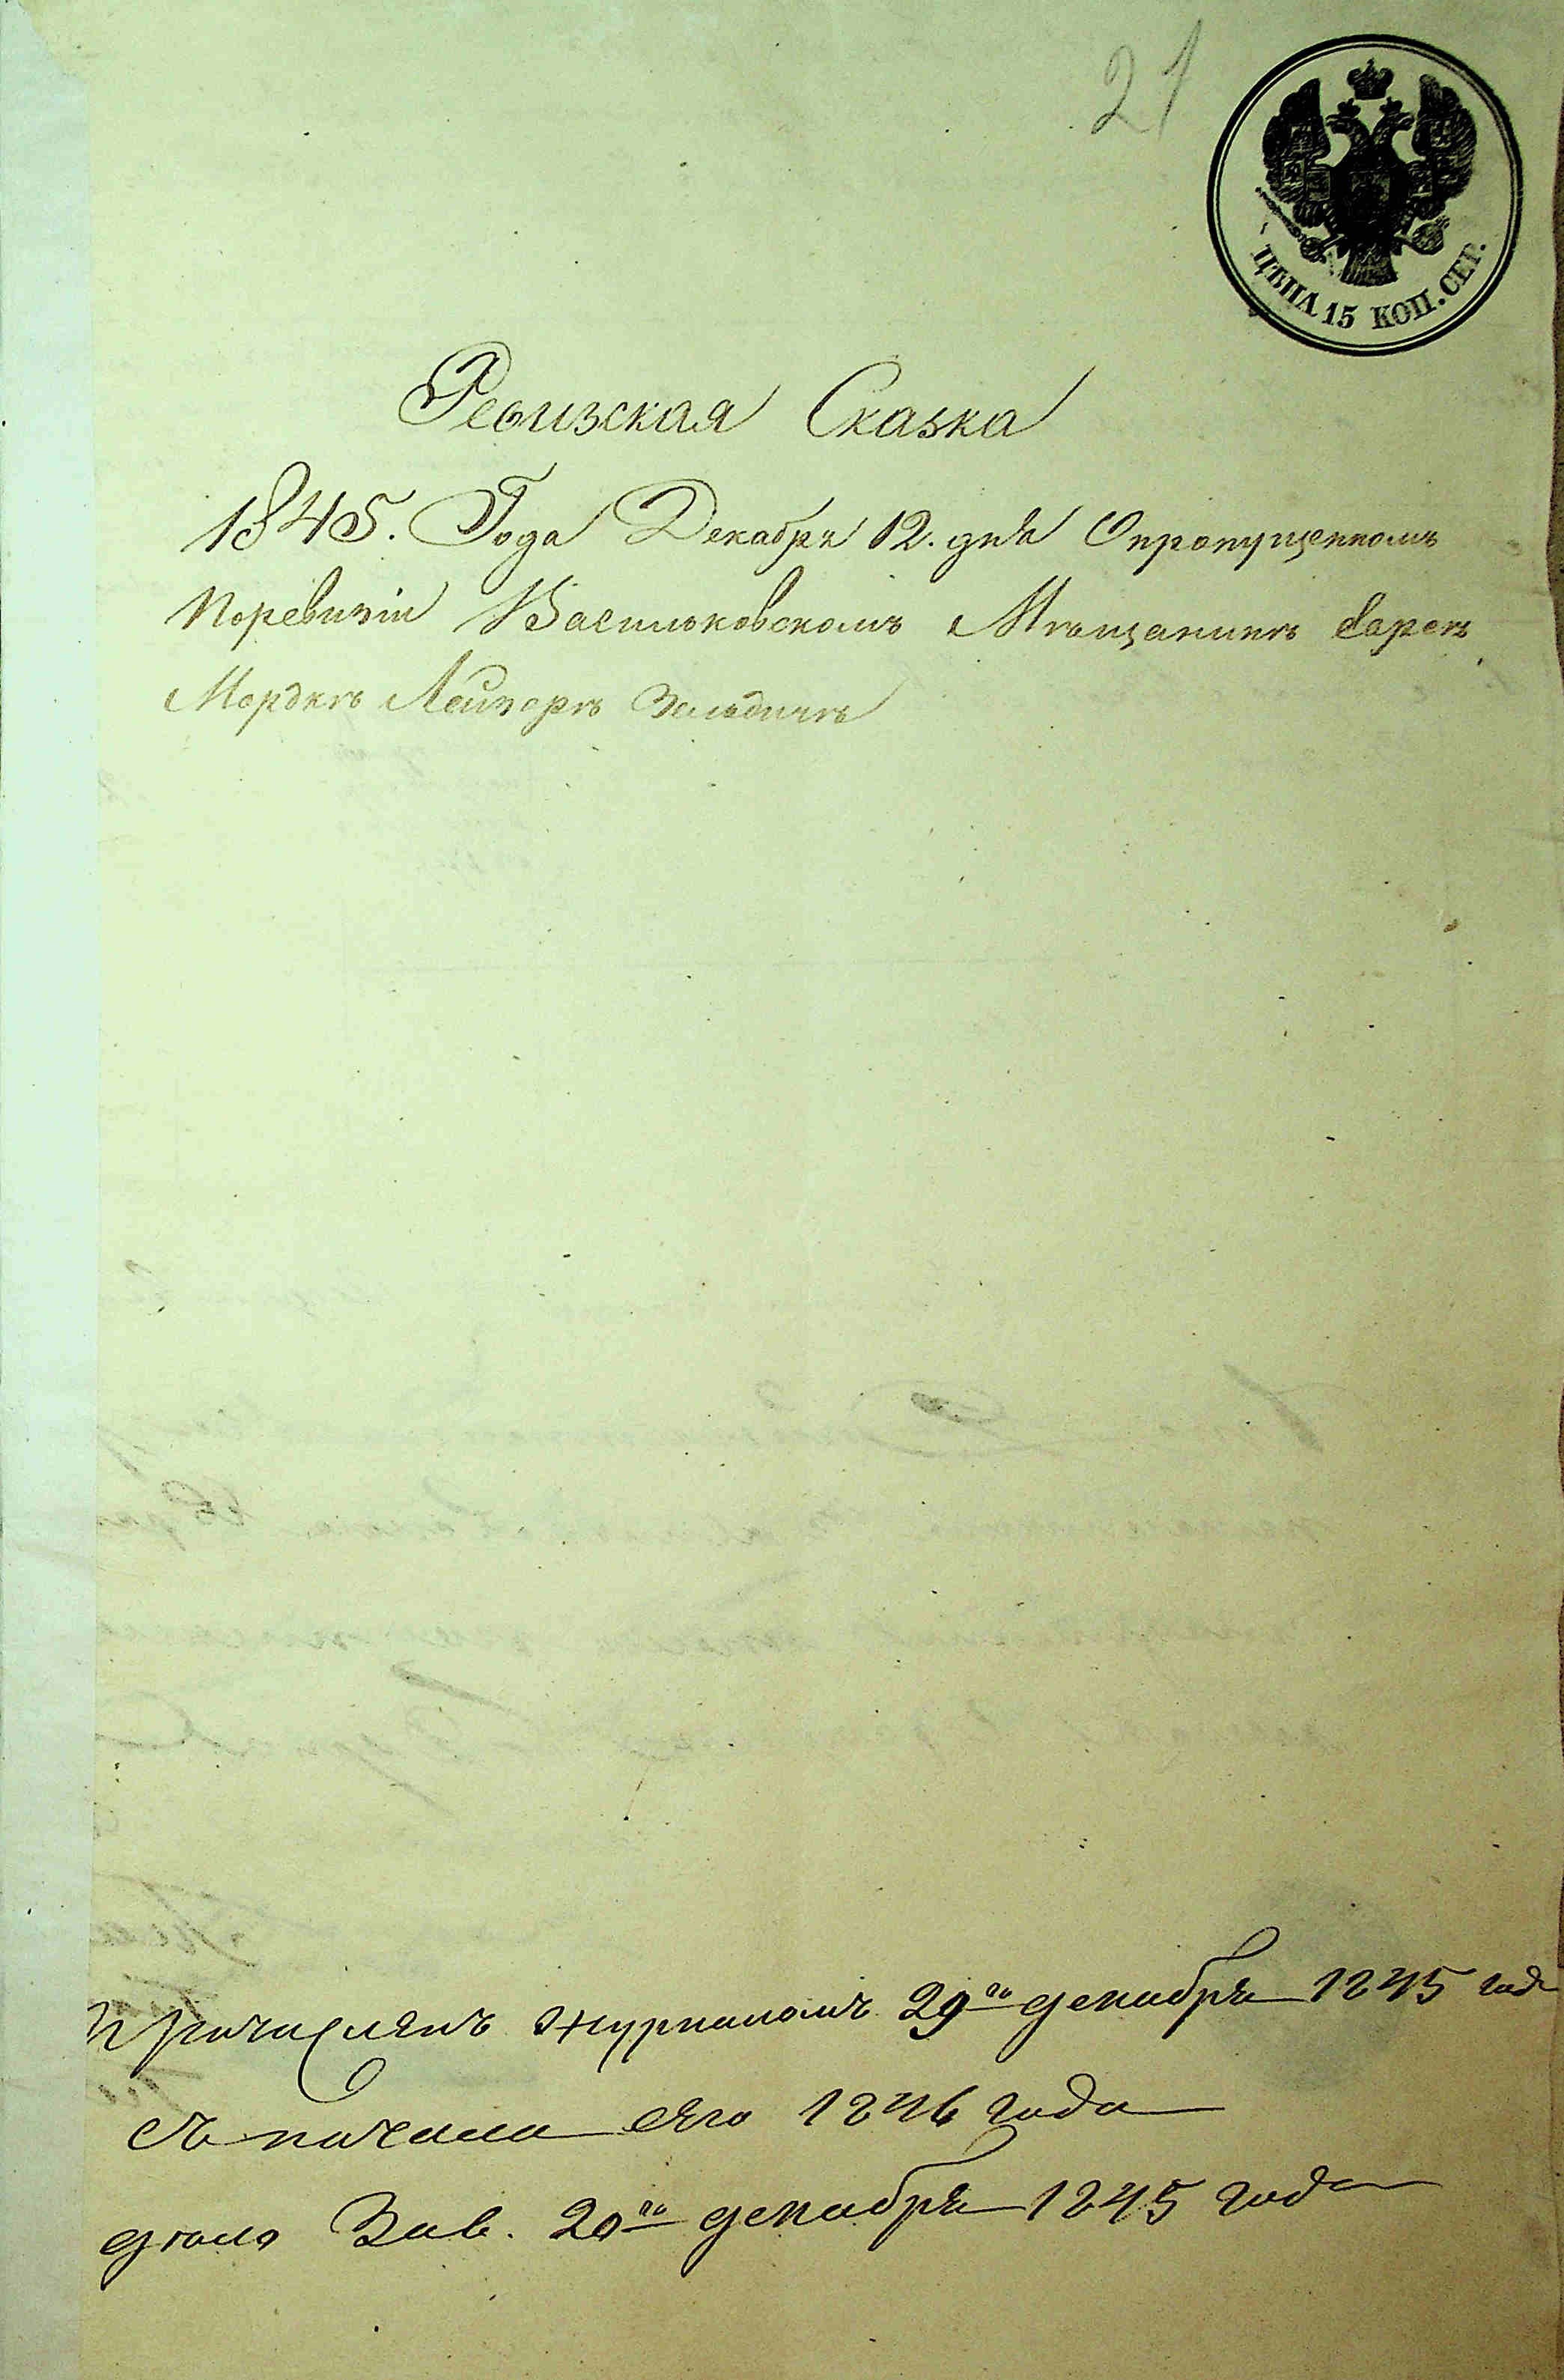 21
ЦѢНА 15 КОП. СЕР.
Ревизская Сказка
1845. Года Декабря 12. дня Опропущенномъ
Поревизіи Васильковскомъ Мѣщанинѣ
Мордкѣ Лейзорѣ
Причисленъ журналомъ 29го декабря 1845 года
съ начала 1846 года
дѣло Зав. 20го декабря 1845 года